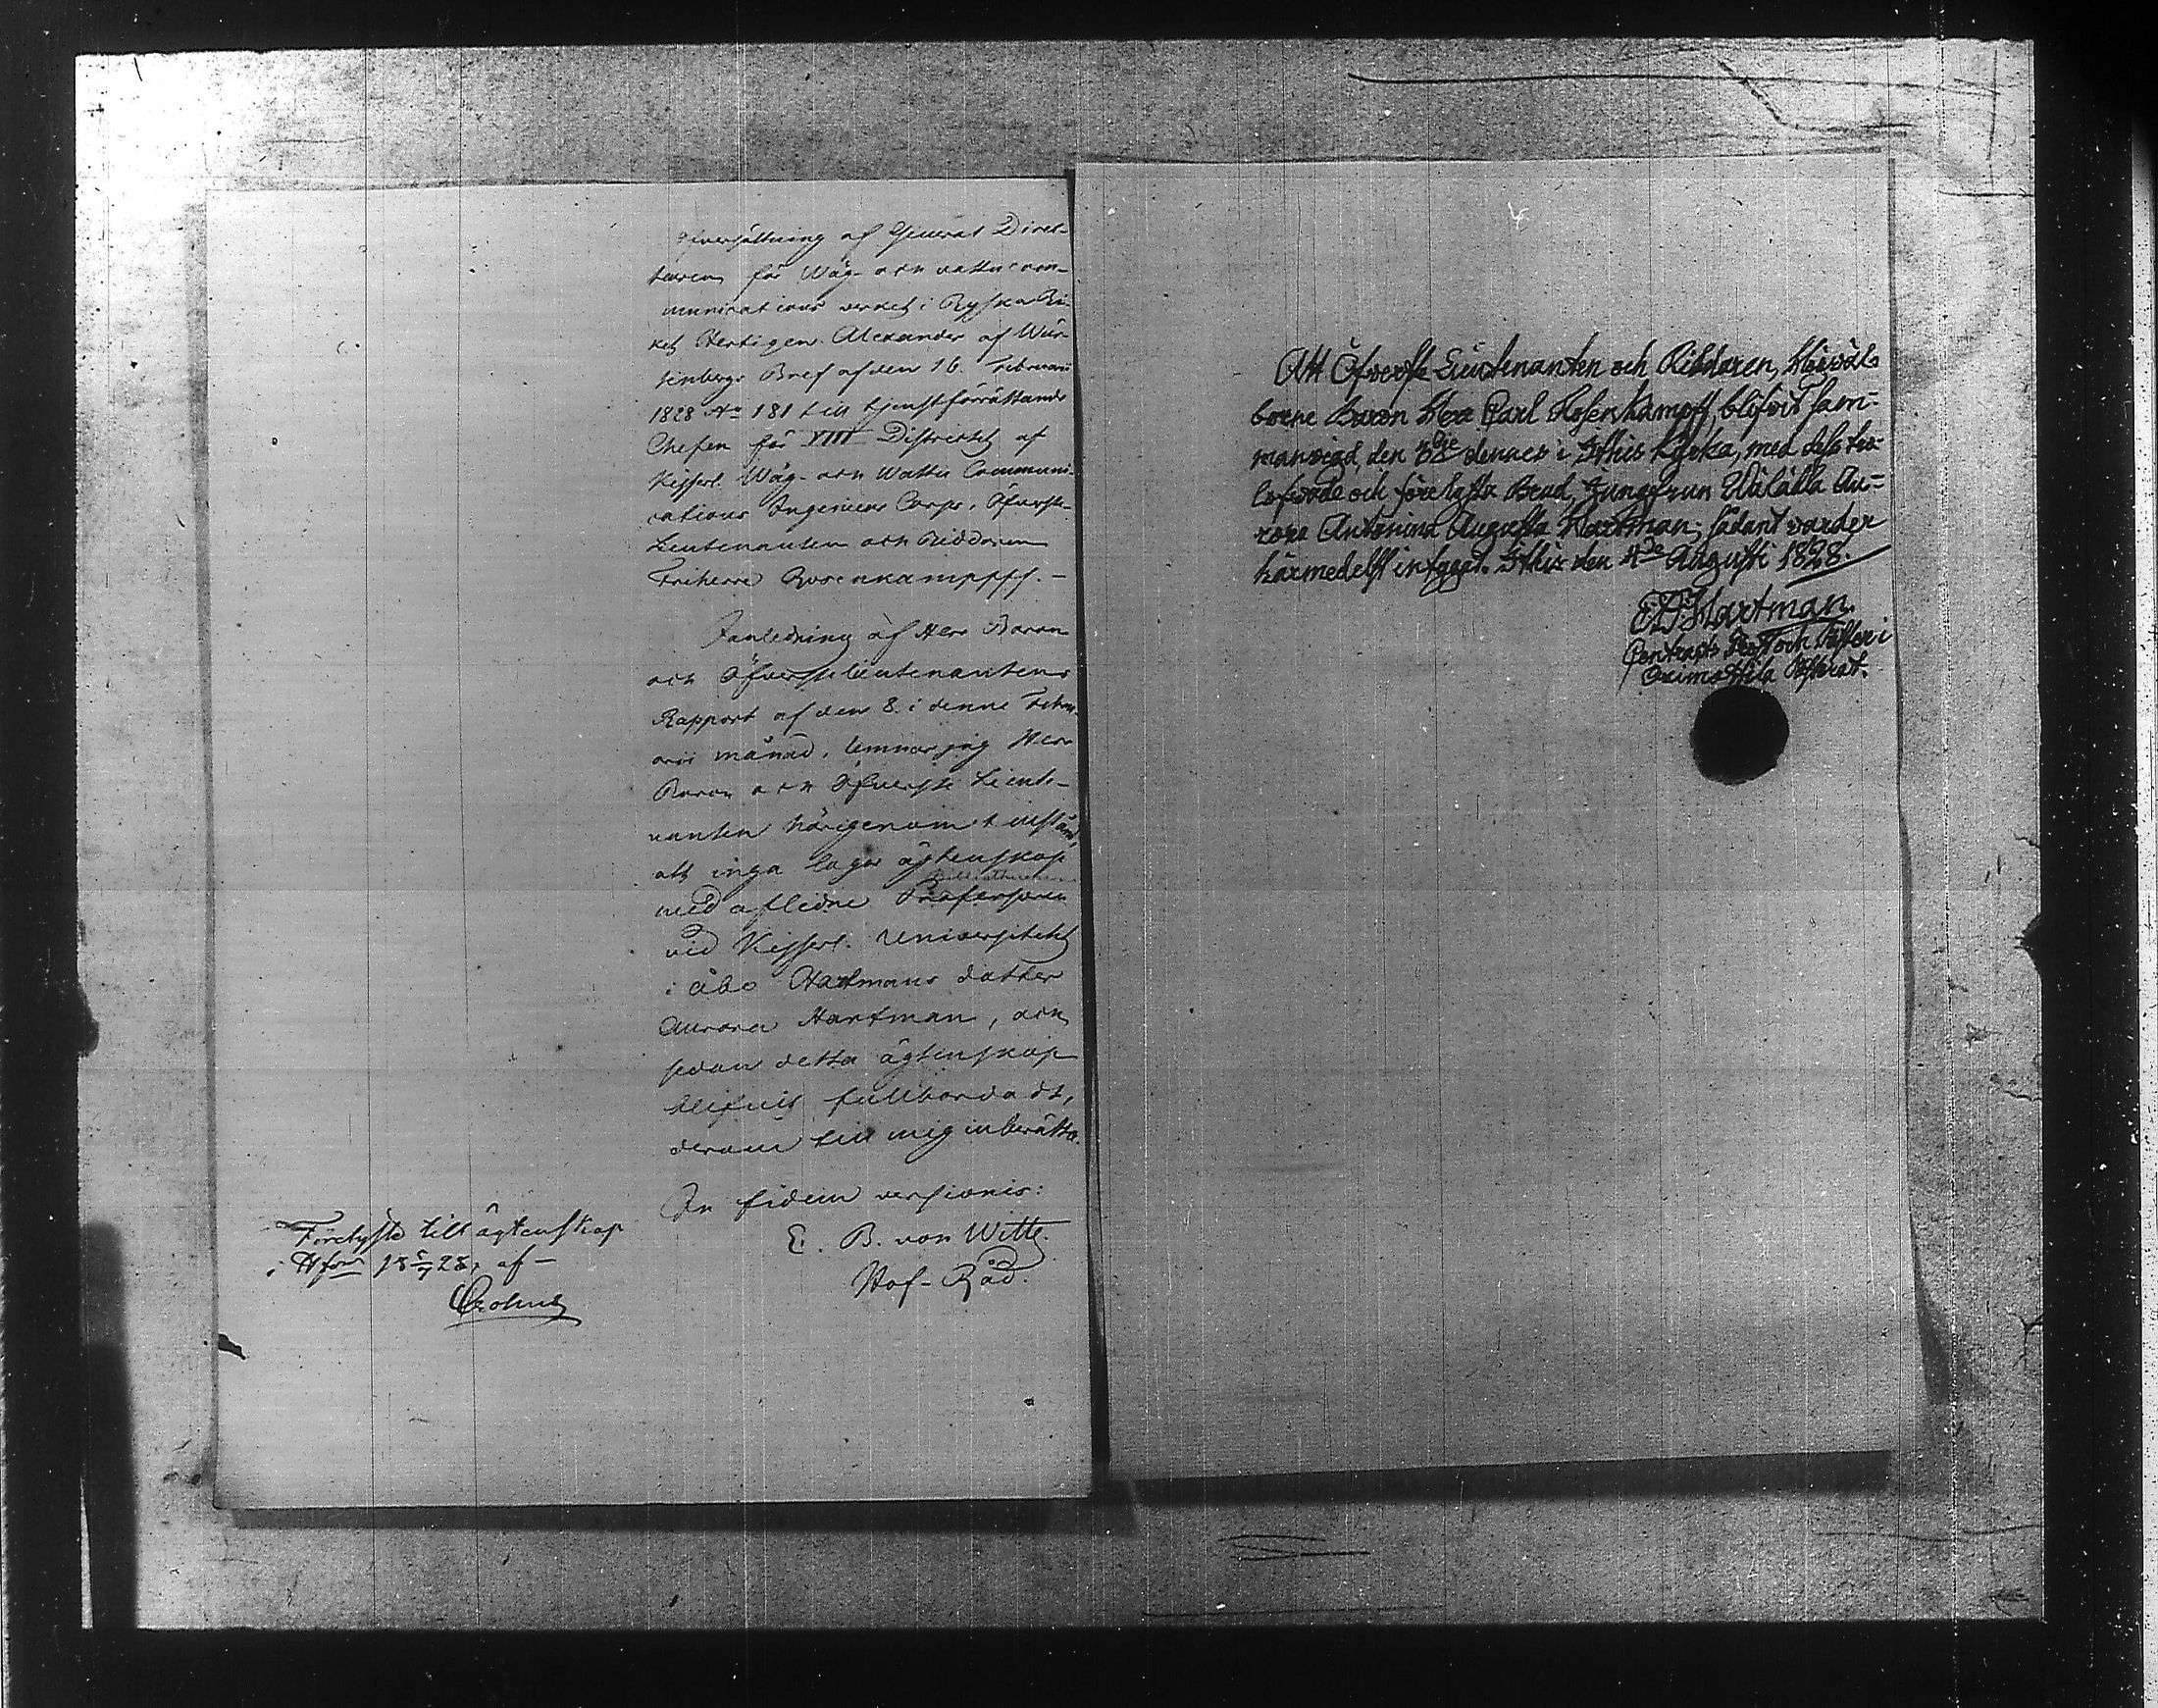 Öfversättning af General Direk-
teuren för Wäg- och vattucom-
munications verket i Ryska Ri-
ket Hertigen Alexander af Wür-
tenbergs Bref af den 16. Februarii
1828 No 181 till tjenstförrättande
Chefen för VIII Districtet af
Kejserl. Wäg- och Wattu Communi-
cations Ingenieur Corps, Öfverste-
Lieutenanten och Riddaren
Friherre Rosenkampff. —
I anledning af Herr Baron
och Öfverstelieutenantens
Rapport af den 8. i denne Febru-
arii månad, lemnar jag Herr
Baron och Öfverste Lieute-
nanten härigenom tillstånd,
att ingå laga ägtenskap
med aflidne Professoren
vid Kejserl. Universitetet
i Åbo Hartmans dotter
Aurora Hartman, och
sedan detta ägtenskap
blifvit fullbordadt,
derom till mig inberätta.
In fidem versionis:
E. B. von Witte.
Hof-Råd.
Förelyste till ägtenskap
i Hfors 18 5/7 28, af —
Crohns
Att Öfverste Lieutenanten och Riddaren, Högväl-
borne Baron Herr Carl Rosenkampff, blifvit sam-
manvigd, den 3die dennes i Ithis Kyrka, med dess tro-
lofvade och förelysta Brud, Jungfrun Wälädla Au-
rora Antonina Augusta Hartman; sådant varder
härmedelst intygad. Ithis den 4de Augusti 1828.
Hartman.
Contracts Prost och Pastor i
Orimattila Pastorat.